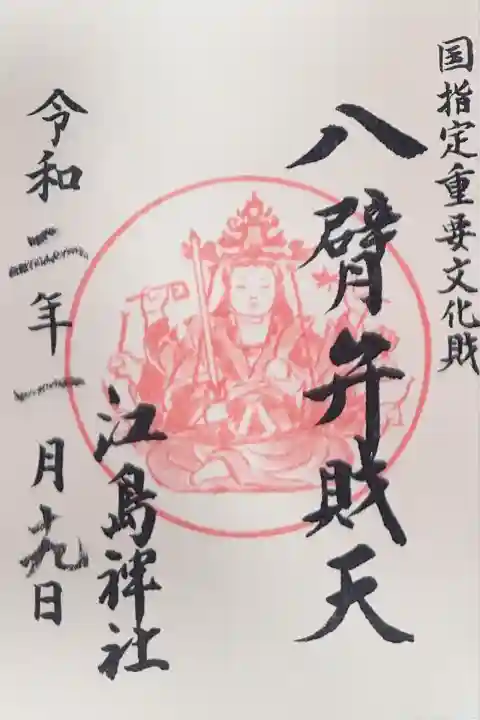 国指定重要文化財
八臂弁財天
江島神社
令和二年一月十九日